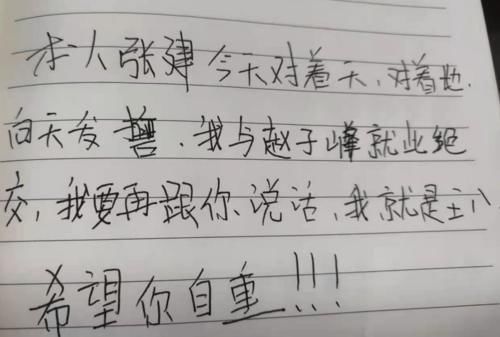 本人张建今天对着天、对着地.
向天发誓、我与赵子峰就此绝
交,我要再跟你、说话,我就是王八
希望你自重!!!